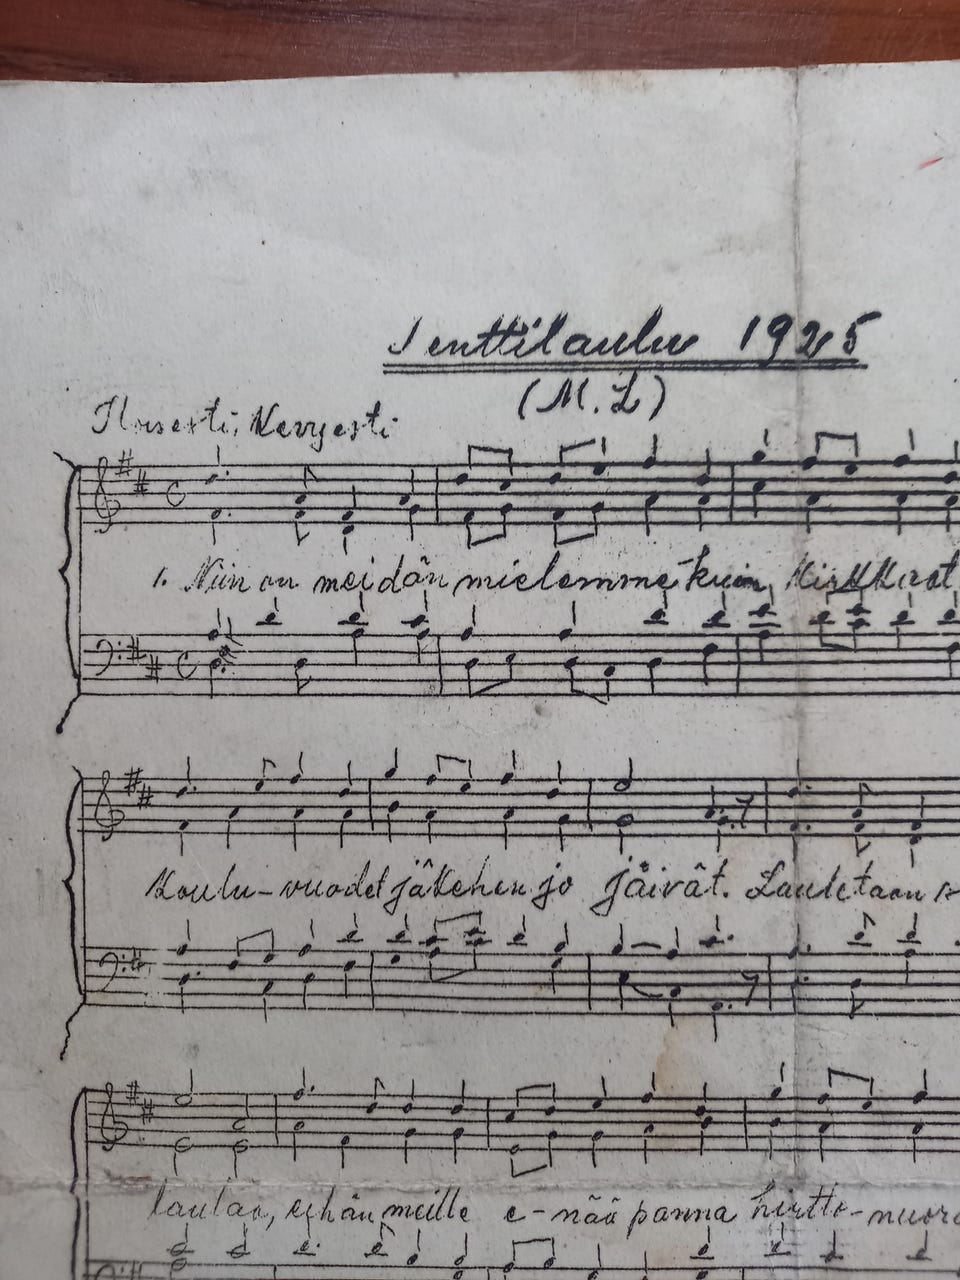 Penttilaulu 1925
(M. L)
Iloisesti, Kevyesti
1. Niin on meidän mielemme kuin kirkkaat
Koulu-vuodet jäkehen jo jäivät. Lauletaan
laulaa, eihän meille e-nää panna hirtto-nuora